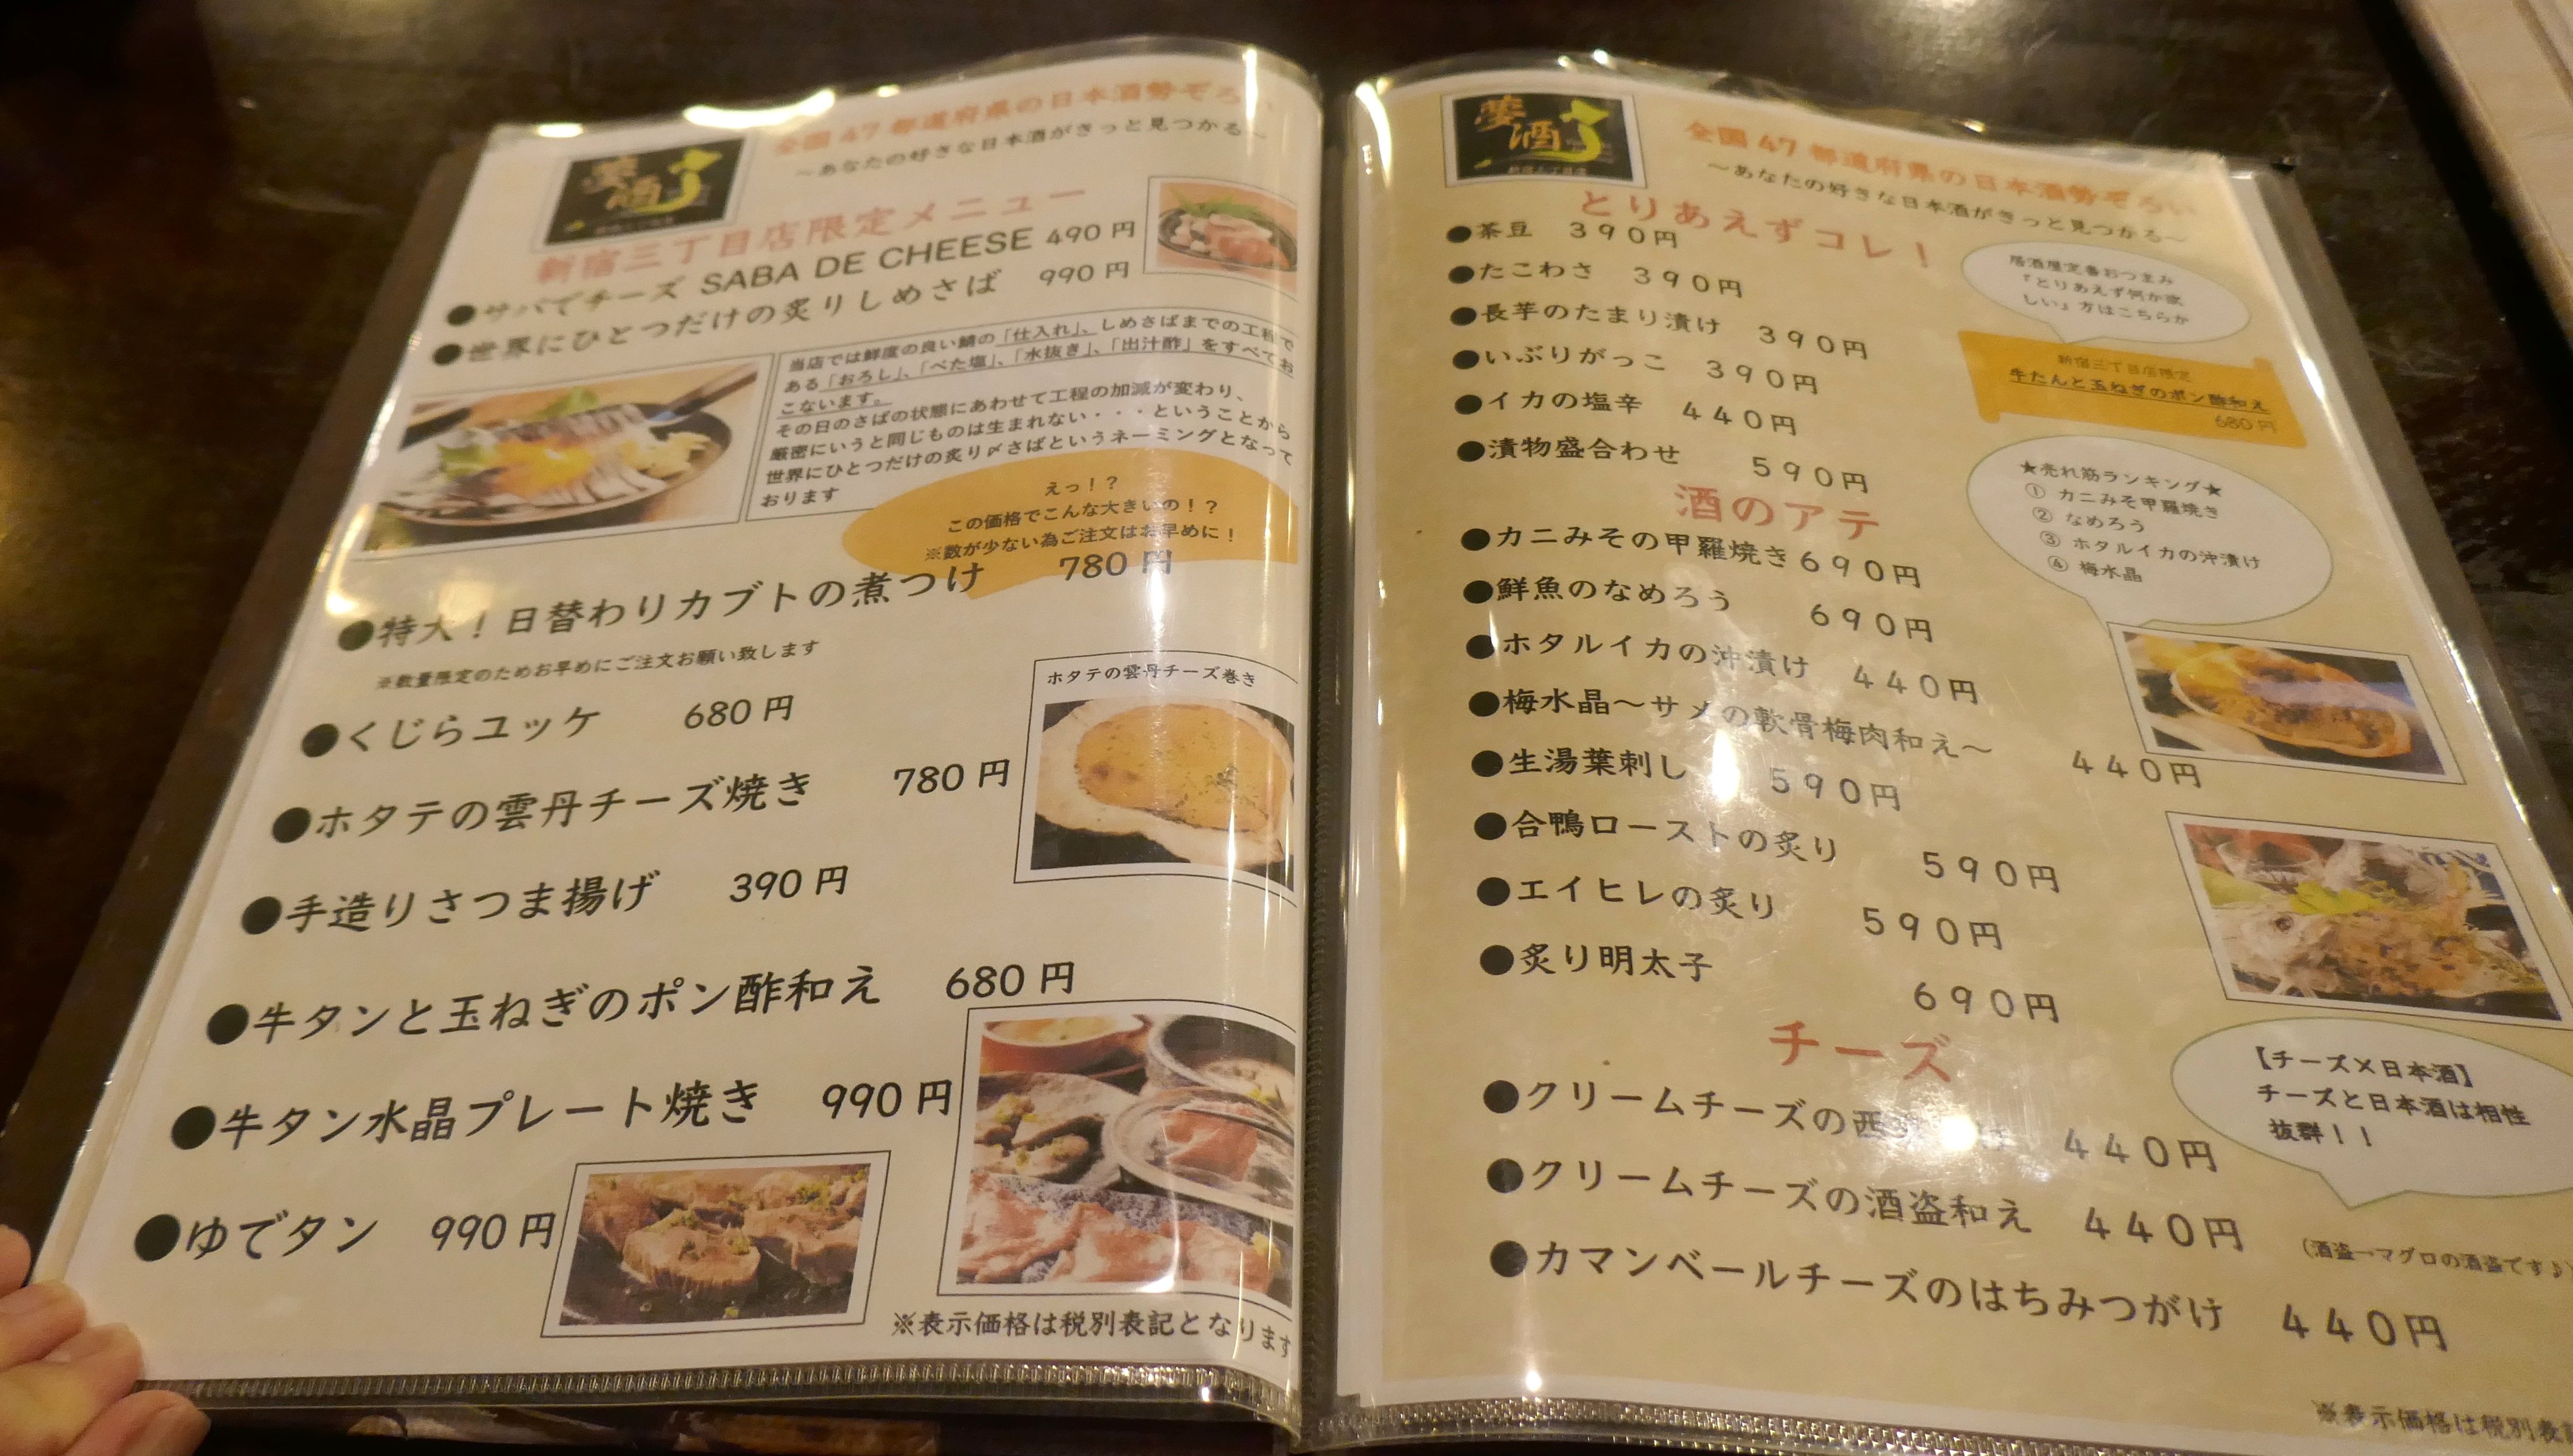 夢酒
全国47都道府県の日本酒勢ぞろい
～あなたの好きな日本酒がきっと見つかる～
新宿三丁目店限定メニュー
●サバでチーズ SABA DE CHEESE 490円
●世界にひとつだけの炙りしめさば 990円
当店では鮮度の良い鯖の「仕入れ」、しめさばまでの工程で
ある「おろし」、「べた塩」、「水抜き」、「出汁酢」をすべてお
こないます。
その日のさばの状態にあわせて工程の加減が変わり、
厳密にいうと同じものは生まれない・・・ということから
世界にひとつだけの炙り〆さばというネーミングとなって
おります
えっ！？
この価格でこんな大きいの！？
※数が少ない為ご注文はお早めに！
●特大！日替わりカブトの煮つけ 780円
※数量限定のためお早めにご注文お願い致します
●くじらユッケ 680円
ホタテの雲丹チーズ巻き
●ホタテの雲丹チーズ焼き 780円
●手造りさつま揚げ 390円
●牛タンと玉ねぎのポン酢和え 680円
●牛タン水晶プレート焼き 990円
●ゆでタン 990円
※表示価格は税別表記となります
夢酒
新宿三丁目店
全国47都道府県の日本酒勢ぞろい
～あなたの好きな日本酒がきっと見つかる～
とりあえずコレ！
●茶豆 390円
●たこわさ 390円
●長芋のたまり漬け 390円
●いぶりがっこ 390円
●イカの塩辛 440円
●漬物盛合わせ 590円
居酒屋定番おつまみ
『とりあえず何か欲
しい』方はこちらか
新宿三丁目店限定
牛たんと玉ねぎのポン酢和え
680円
酒のアテ
●カニみその甲羅焼き690円
●鮮魚のなめろう 690円
●ホタルイカの沖漬け 440円
●梅水晶～サメの軟骨梅肉和え～ 440円
●生湯葉刺し 590円
●合鴨ローストの炙り 590円
●エイヒレの炙り 590円
●炙り明太子 690円
★売れ筋ランキング★
① カニみそ甲羅焼き
② なめろう
③ ホタルイカの沖漬け
④ 梅水晶
チーズ
●クリームチーズの西 440円
●クリームチーズの酒盗和え 440円
(酒盗→マグロの酒盗です♪)
●カマンベールチーズのはちみつがけ 440円
【チーズ×日本酒】
チーズと日本酒は相性
抜群！！
※表示価格は税別表